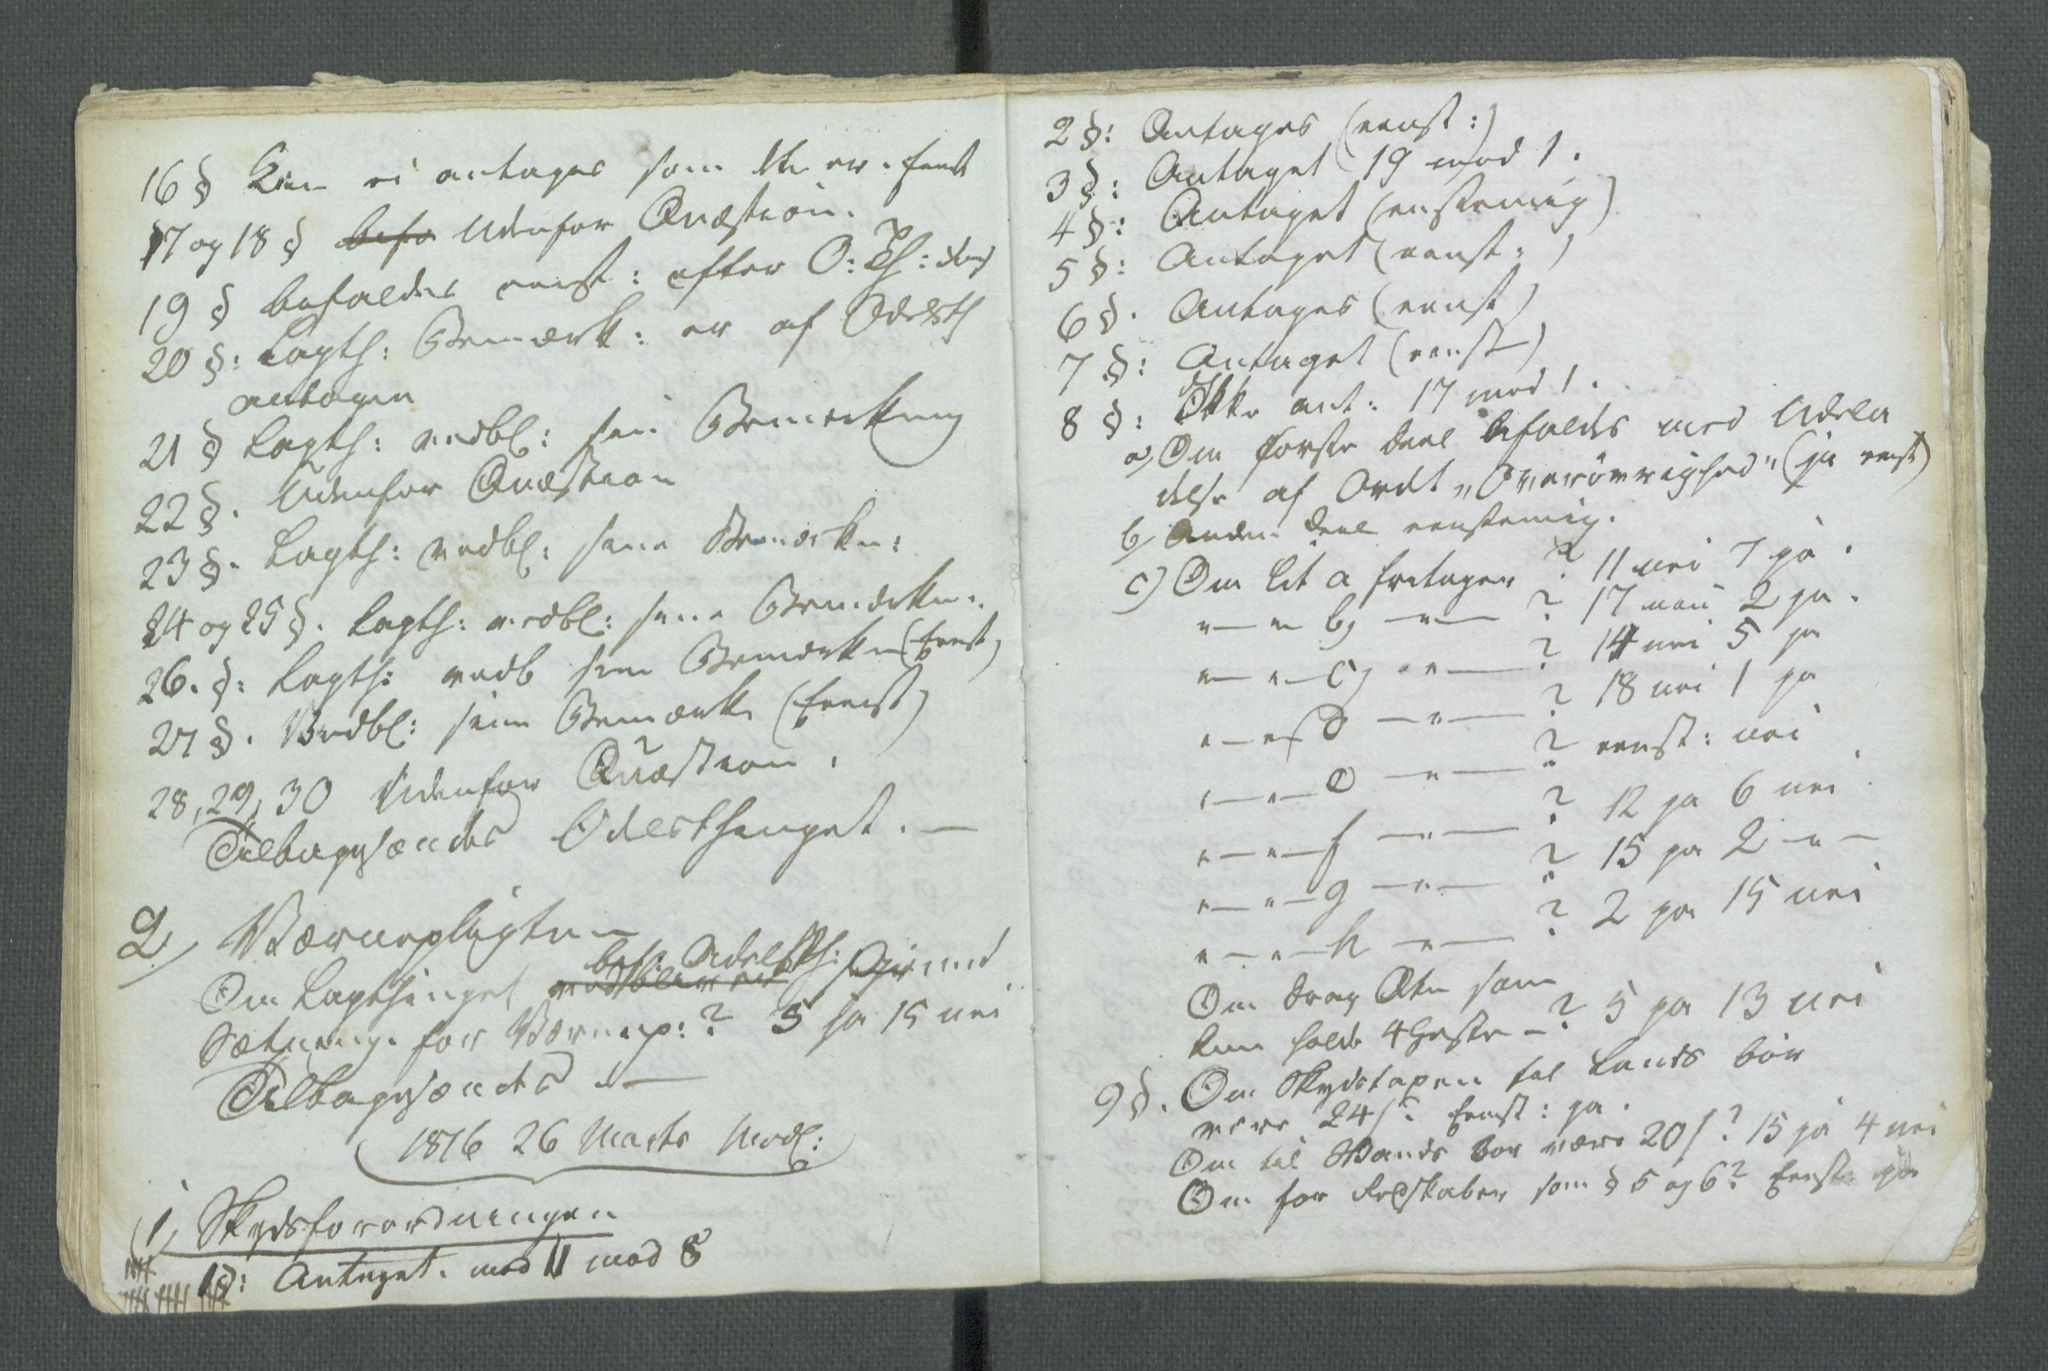 16 § Kan ei antages som den er. Eenst
17 og 18 § Udenfor Qvæstion.
19 § bifaldes eenst: efter O: Th:
20 §: Lagth: Bemærk: er af Odelsth
antagen
21 § Lagth: vedbl: sin Bemerkning
22 §. Udenfor Qvæstion
23 §. Lagth: vedbl: sine Bemærkn:
24 og 25 §. Lagth: vedbl: sine Bemærkn.
26. §: Lagth: vedb sin Bemærkn (Eenst)
27 §. Vedbl: sin Bemærk (Eenst)
28, 29, 30 Udenfor Qvæstion.
Tilbagesendes Odelsthinget. —
2, Værnepligten
bif: Odelsth:
Om Lagthinget vedbliver Grund
Sætning. for Værnep:? 5 ja 15 nei
Tilbagesendes —
1816 26 Marts Modl:
1, Skydsforordningen
1 §: Antaget. med 11 mod 8
2 §: Antages (eenst:)
3 §: Antaget 19 mod 1.
4 §: Antaget (enstemig)
5 §: Antaget (eenst:)
6 §. Antages (eenst)
7 §: Antaget (eenst)
8 §: Ikke ant: 17 mod 1.
a, Om første Deel bifaldes med Udela
delse af Ordet „Overøvrighed" (ja eenst)
b, Anden Deel eenstemig.
c) Om Lit a fritages? 11 nei 7 ja.
„ — „ b, — „ — ? 17 nei 2 ja.
„ — „ — c, — „ — ? 14 nei 5 ja
„ — „ — d — „ — ? 18 nei 1 ja
„ — „ — e — „ — ? eenst: nei
„ — „ — f — „ — ? 12 ja 6 nei
„ — „ — g — „ — ? 15 ja 2 — „ —
„ — „ — h — „ — ? 2 ja 15 nei
Om som
kun holde 4 Heste —? 5 ja 13 nei
9 §. Om Skydstaxen til Lands bør
være 24 s? Eenst: ja.
Om til Vands bør være 20 s? 15 ja 4 nei
Om for Redskaber som § 5 og 6? Eenst ja